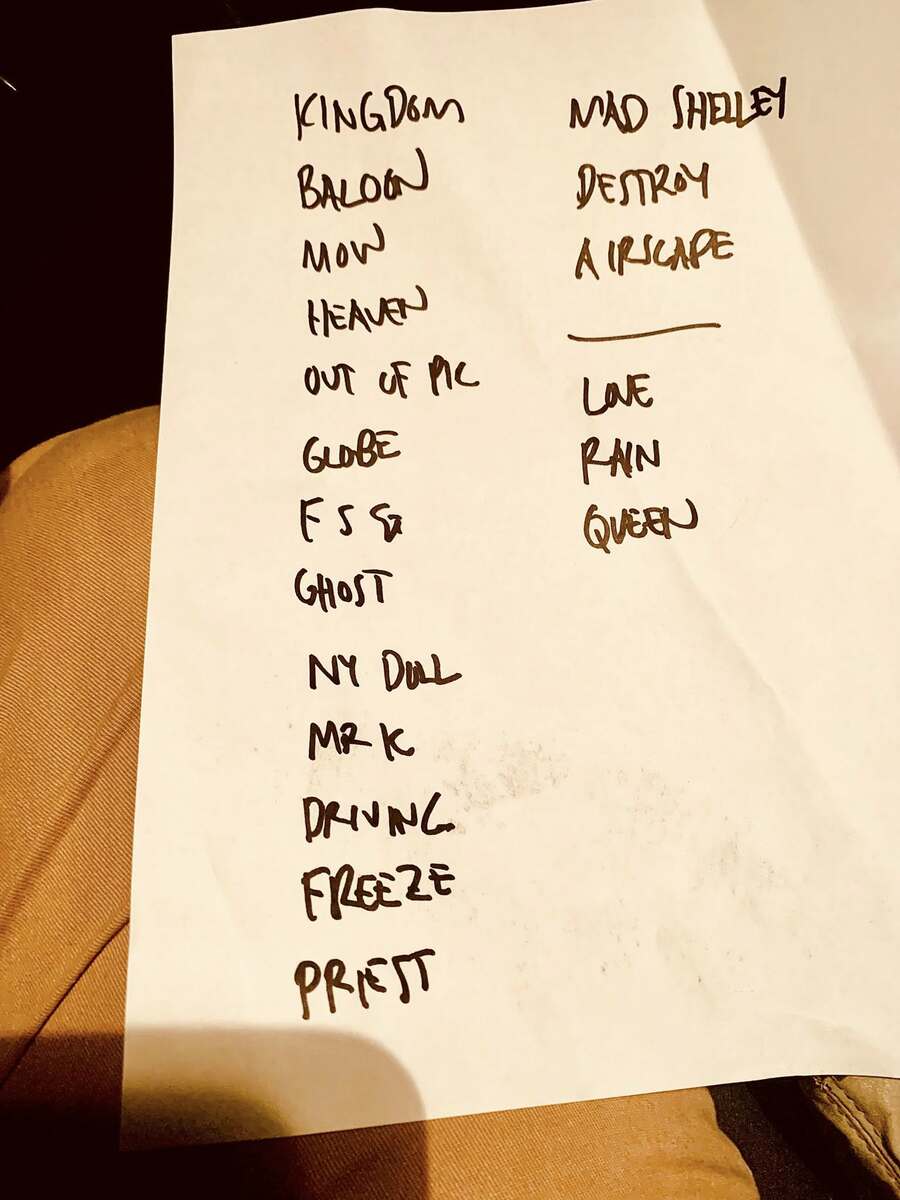 KINGDOM
BALOON
MOW
HEAVEN
OUT OF PIC
GLOBE
F S G
GHOST
NY DOLL
MR K
DRIVING
FREEZE
PRIEST
MAD SHELLEY
DESTROY
AIRSCAPE
LOVE
RAIN
QUEEN